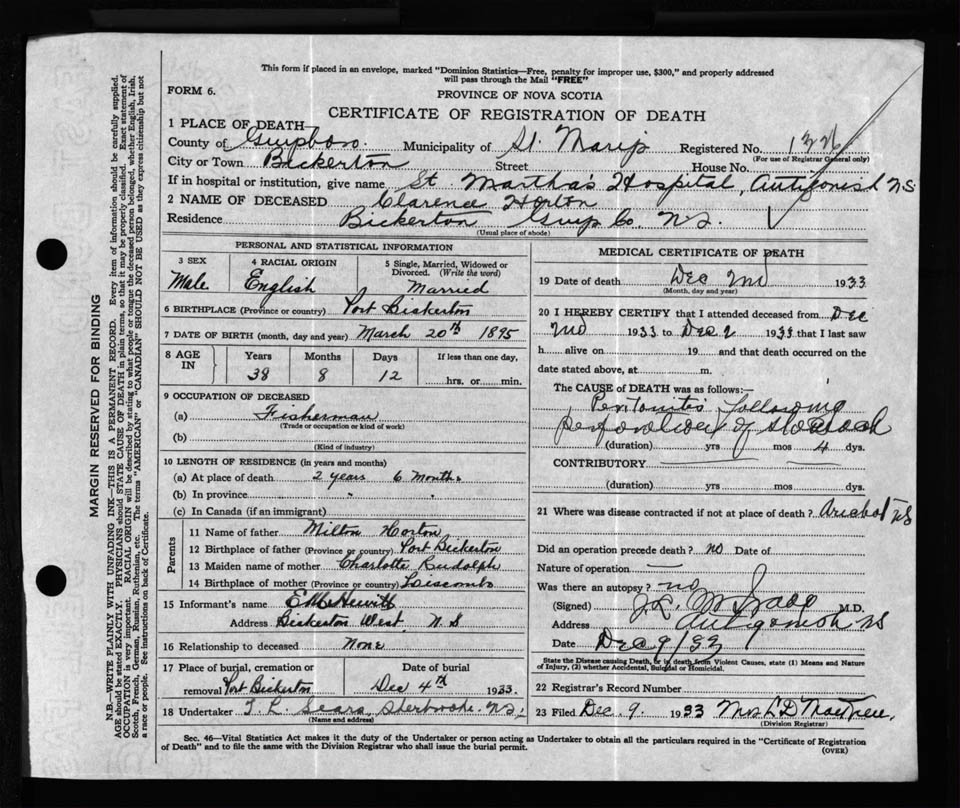 This form if placed in an envelope, marked "Dominion Statistics—Free, penalty for improper use, $300," and properly addressed
will pass through the Mail "FREE"
FORM 6.
PROVINCE OF NOVA SCOTIA
CERTIFICATE OF REGISTRATION OF DEATH
1 PLACE OF DEATH—
County of Guysboro. Municipality of St. Marys Registered No.
(For use of Registrar General only)
City or Town Bickerton Street House No.
If in hospital or institution, give name St. Martha's Hospital, Antigonish N.S.
2 NAME OF DECEASED Clarence Horton
Residence Bickerton Guys Co. N.S.
(Usual place of abode)
PERSONAL AND STATISTICAL INFORMATION
3 SEX 4 RACIAL ORIGIN 5 Single, Married, Widowed or
Divorced. (Write the word)
Male English Married
6 BIRTHPLACE (Province or country) Port Bickerton
7 DATE OF BIRTH (month, day and year) March 20th 1895
8 AGE IN Years Months Days If less than one day,
38 8 12 hrs. or min.
9 OCCUPATION OF DECEASED
(a) Fisherman
(Trade or occupation or kind of work)
(b)
(Kind of industry)
10 LENGTH OF RESIDENCE (in years and months)
(a) At place of death 2 years 6 months
(b) In province " "
(c) In Canada (if an immigrant)
Parents
11 Name of father Milton Horton
12 Birthplace of father (Province or country) Port Bickerton
13 Maiden name of mother Charlotte Rudolph
14 Birthplace of mother (Province or country) Liscomb
15 Informant's name Hewitt
Address Bickerton West, N.S
16 Relationship to deceased None
17 Place of burial, cremation or Date of burial
removal Port Bickerton Dec 4th 1933.
18 Undertaker T. L. Sears, Sherbrooke N.S.
(Name and address)
MEDICAL CERTIFICATE OF DEATH
19 Date of death Dec 2nd 1933
(Month, day and year)
20 I HEREBY CERTIFY that I attended deceased from Dec
2nd 1933 to Dec 2 1933 that I last saw
h alive on 19 and that death occurred on the
date stated above, at m.
The CAUSE of DEATH was as follows:—
Peritonitis following
perforation of stomach
(duration) yrs mos 4 dys.
CONTRIBUTORY
(duration) yrs mos dys.
21 Where was disease contracted if not at place of death? NS
Did an operation precede death? no Date of
Nature of operation —
Was there an autopsy? no
(Signed) J.L. M.D.
Address Antigonish NS
Date Dec 9/33
State the Disease causing Death, or in death from Violent Causes, state (1) Means and Nature
of Injury, (2) whether Accidental, Suicidal or Homicidal.
22 Registrar's Record Number
23 Filed Dec. 9. 1933 Mrs L D
(Division Registrar)
Sec. 46—Vital Statistics Act makes it the duty of the Undertaker or person acting as Undertaker to obtain all the particulars required in the "Certificate of Registration
of Death" and to file the same with the Division Registrar who shall issue the burial permit. (OVER)
MARGIN RESERVED FOR BINDING
N.B.—WRITE PLAINLY WITH UNFADING INK—THIS IS A PERMANENT RECORD. Every item of information should be carefully supplied.
AGE should be stated EXACTLY. PHYSICIANS should STATE CAUSE OF DEATH in plain terms, so that it may be properly classified. Exact statement of
OCCUPATION is very important. RACIAL ORIGIN will be described by stating to what people or tongue the deceased person belonged, whether English, Irish,
Scotch, French, German, Russian, Ruthenian, etc. The terms "AMERICAN" or "CANADIAN" SHOULD NOT BE USED as they express citizenship but not
a race or people. See instructions on back of Certificate.